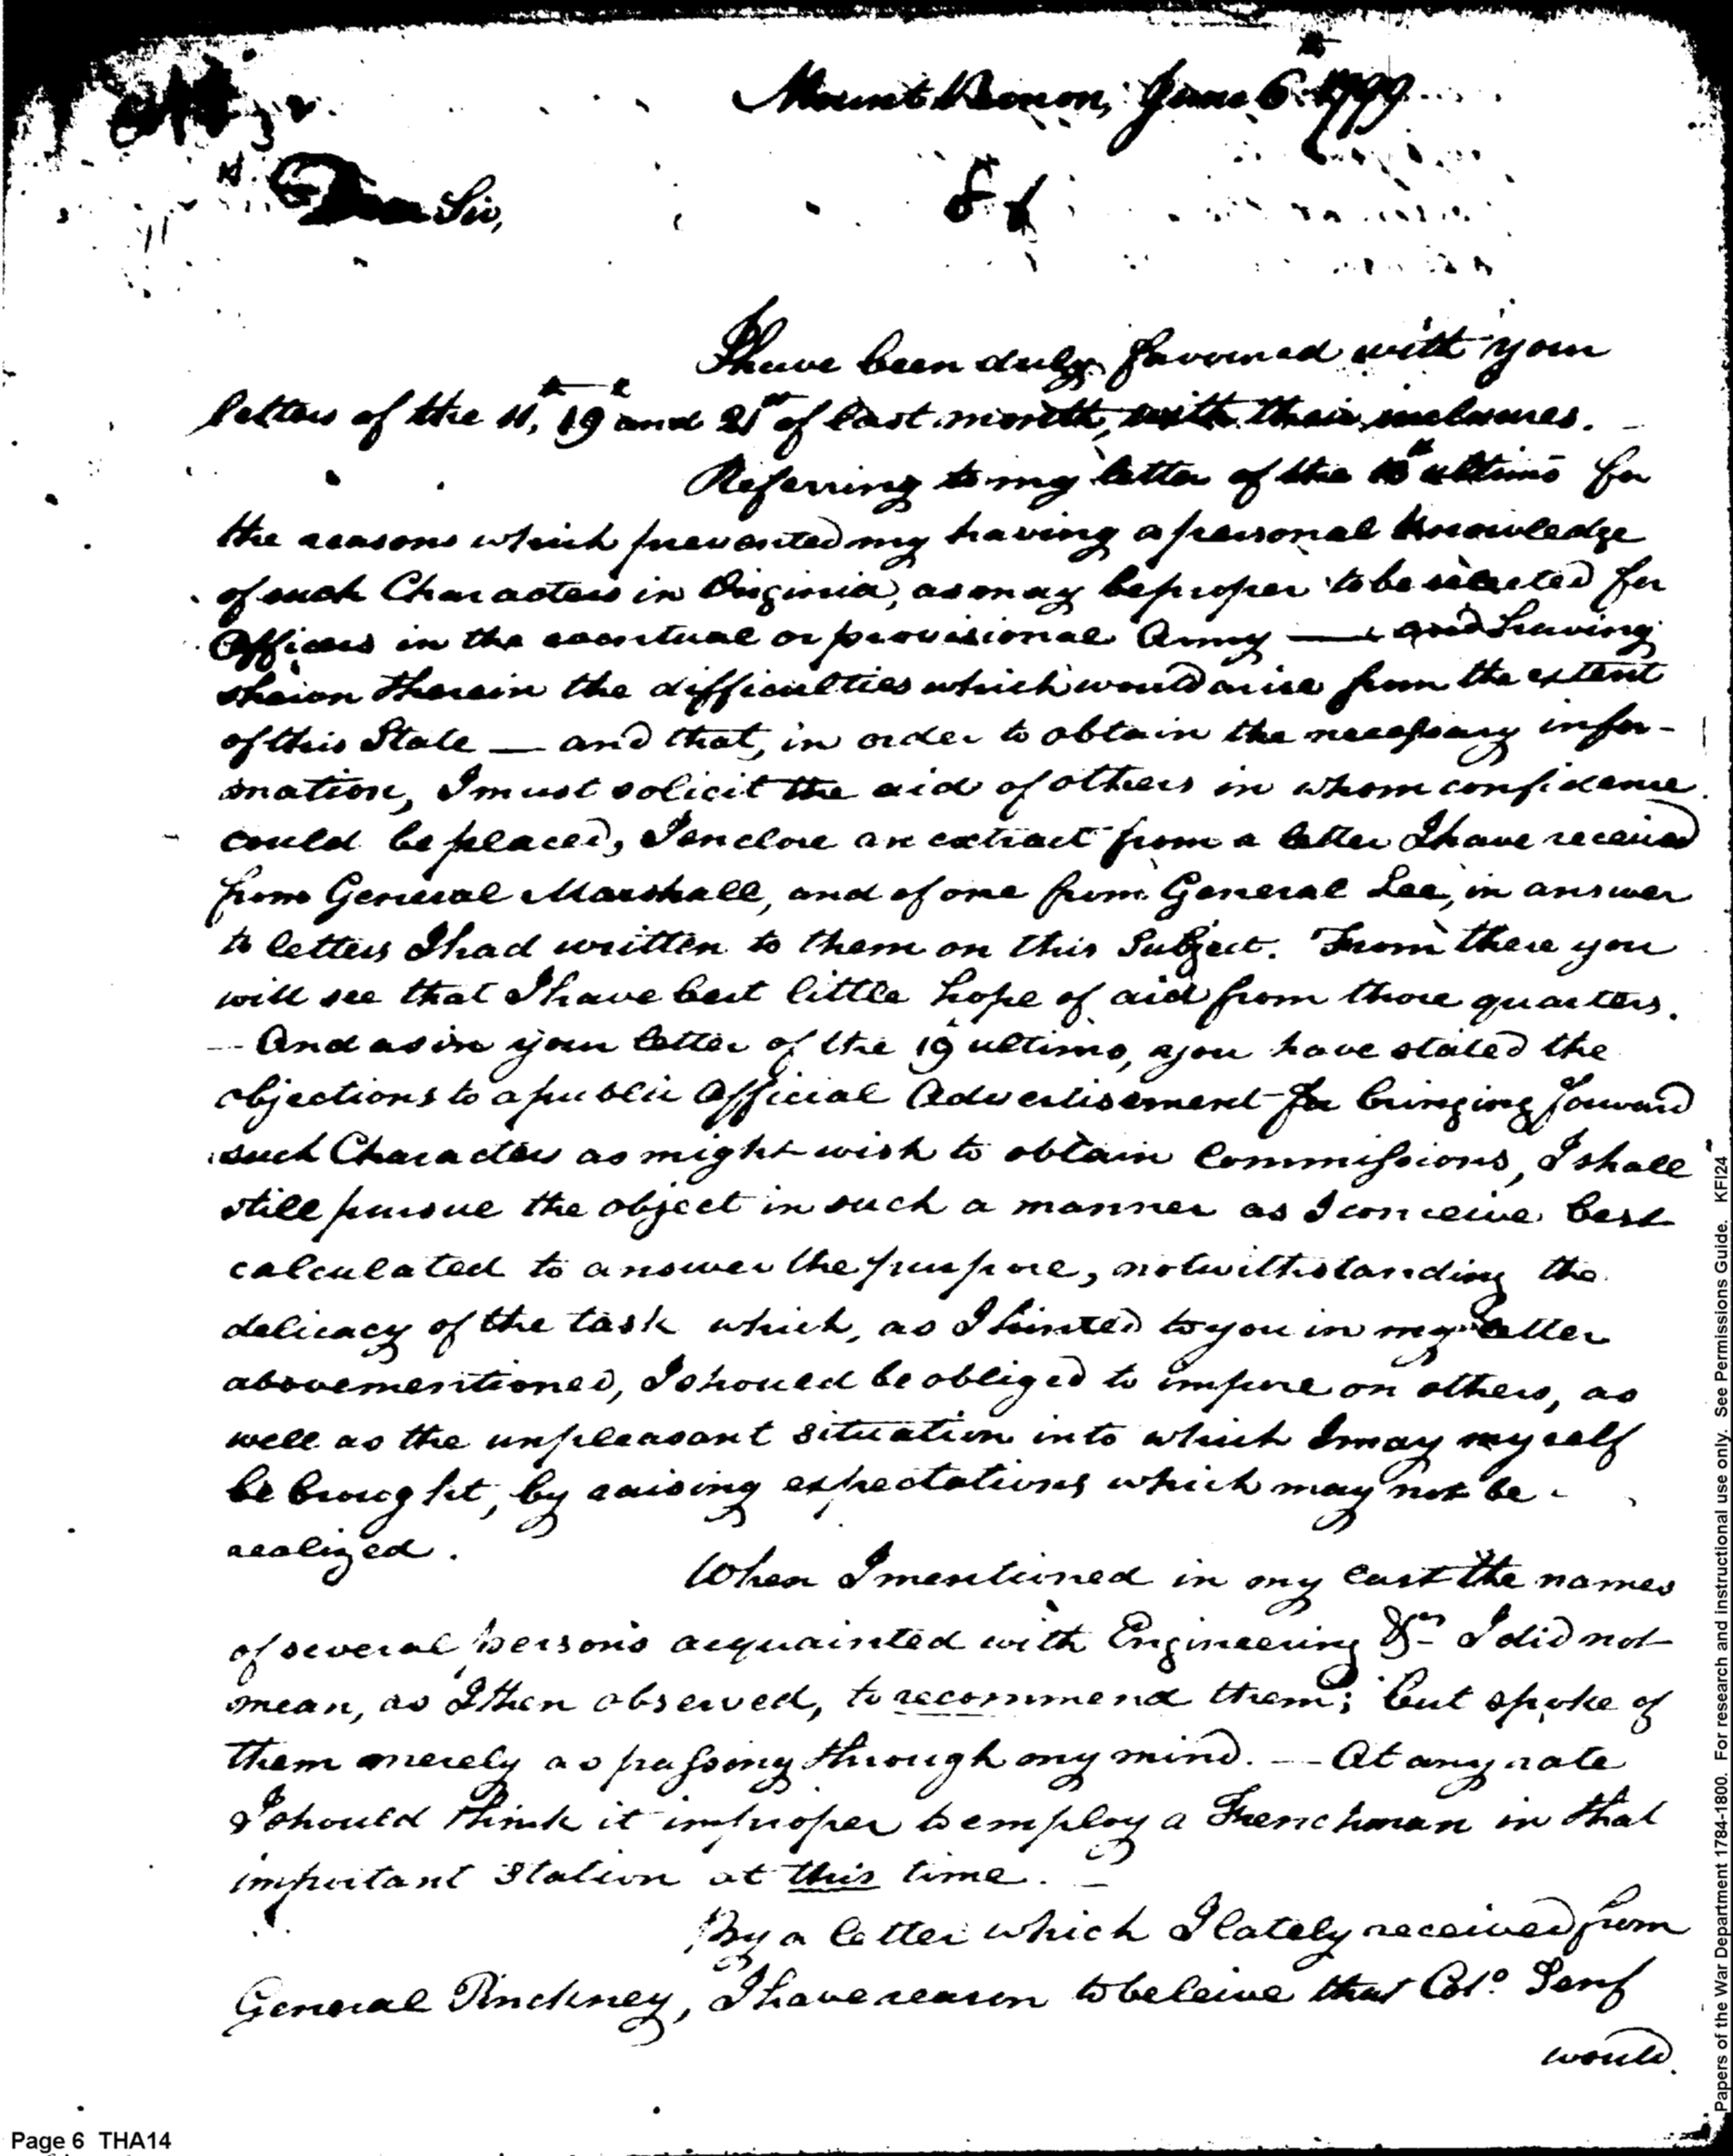 Mount Vernon, June 6th 1799
Dear Sir,
I have been duly favoured with your
letters of the 11th, 19th and 21st of last month, with their inclosures.
Referring to my letter of the 13th ultimo for
the reasons which prevented my having a personal knowledge
of such Characters in Virginia, as may be proper to be selected for
Officers in the eventual or provisional Army — and having
shewn therein the difficulties which would arise from the extent
of this State — and that, in order to obtain the necessary infor-
mation, I must solicit the aid of others in whom confidence
could be placed, I enclose an extract from a letter I have received
from General Marshall, and of one from General Lee, in answer
to letters I had written to them on this Subject. From these you
will see that I have but little hope of aid from those quarters.
— And as in your letter of the 19 ultimo, you have stated the
objections to a public Official Advertisement for bringing forward
such Characters as might wish to obtain Commissions, I shall
still pursue the object in such a manner as I conceive best
calculated to answer the purpose, notwithstanding the
delicacy of the task which, as I hinted to you in my letter
abovementioned, I should be obliged to impose on others, as
well as the unpleasant situation into which I may myself
be brought, by raising expectations which may not be
realized.
When I mentioned in my last the names
of several persons acquainted with Engineering &ca I did not
mean, as I then observed, to recommend them; but spoke of
them merely as passing through my mind. — At any rate
I should think it improper to employ a Frenchman in that
important Station at this time. —
By a letter which I lately received from
General Pinckney, I have reason to beleive that Colo. Senf
would
Page 6 THA14
Papers of the War Department 1784-1800. For research and instructional use only. See Permissions Guide. KFI24